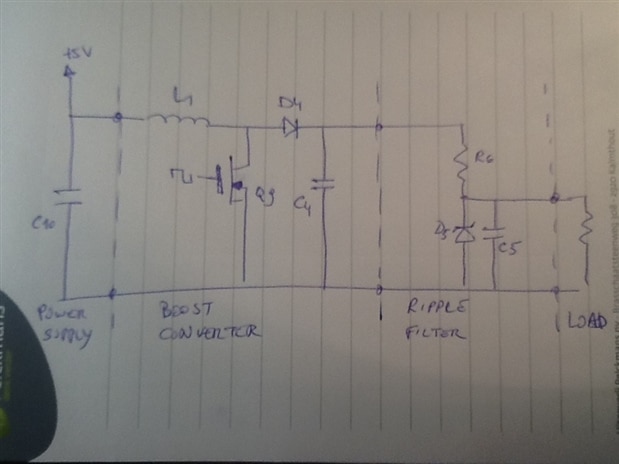 +5V
L1
D4
C10
Q9
C4
R6
D5
C5
POWER
SUPPLY
BOOST
CONVERTER
RIPPLE
FILTER
LOAD